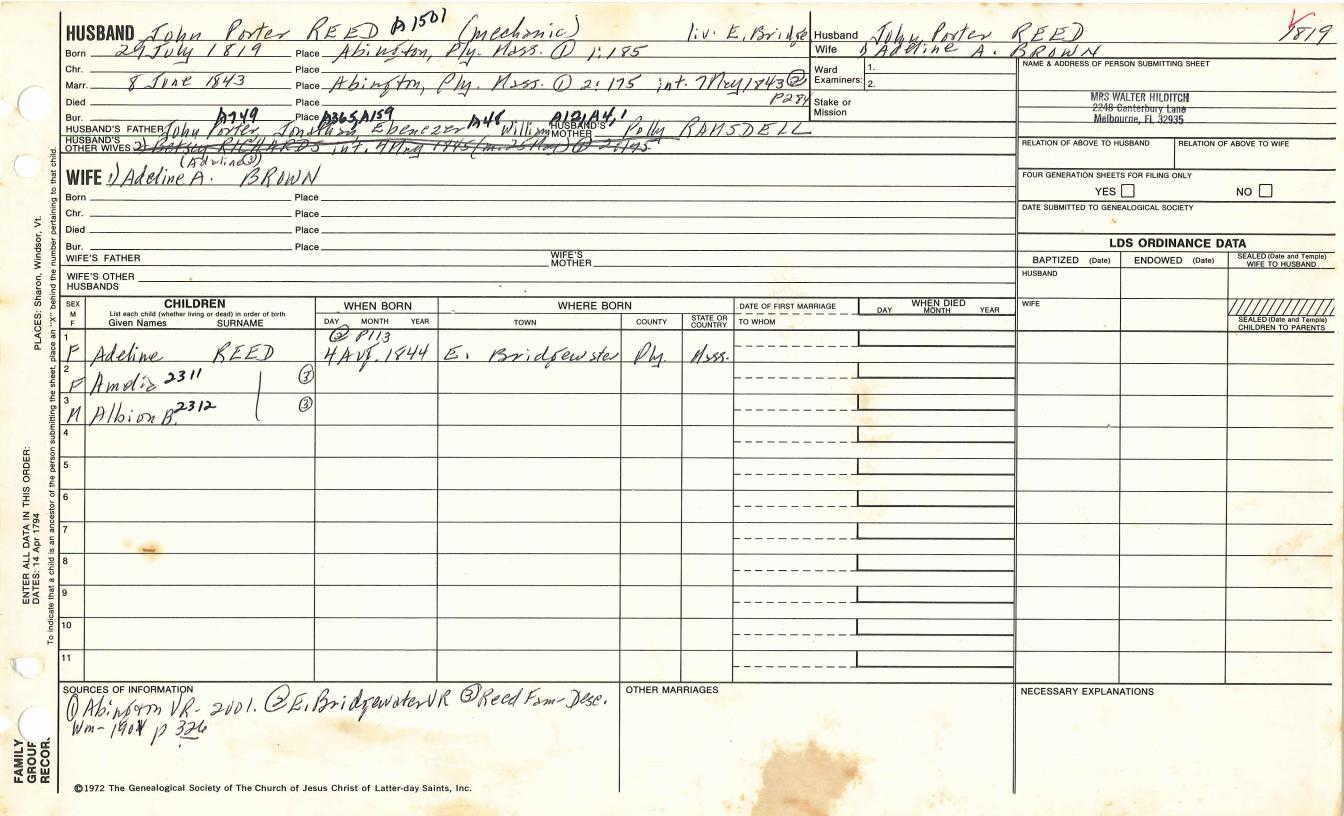 HUSBAND John Porter REED A1501 (mechanic) liv. E. Bridge
Born 29 July 1819 Place Abington, Ply. Mass. ① 1:185
Chr. Place
Marr. 8 June 1843 Place Abington, Ply. Mass. ① 2:175 int. 7 May 1843 ②
P284
Died Place
Bur. Place
A749 A365, A159 A48 A12, A4, 1
HUSBAND'S FATHER John Porter, Jonathan, Ebenezer, William HUSBAND'S MOTHER Polly RAMSDELL
HUSBAND'S OTHER WIVES 2) Betsey RICHARDS int.
(Adeline ③)
WIFE 1) Adeline A. BROWN
Born Place
Chr. Place
Died Place
Bur. Place
WIFE'S FATHER WIFE'S MOTHER
WIFE'S OTHER HUSBANDS
Husband John Porter REED 1819
Wife 1) Adeline A. BROWN
Ward Examiners: 1.
2.
Stake or Mission
NAME & ADDRESS OF PERSON SUBMITTING SHEET
MRS WALTER HILDITCH
2248 Canterbury Lane
Melbourne, FL 32935
RELATION OF ABOVE TO HUSBAND RELATION OF ABOVE TO WIFE
FOUR GENERATION SHEETS FOR FILING ONLY
YES NO
DATE SUBMITTED TO GENEALOGICAL SOCIETY
LDS ORDINANCE DATA
BAPTIZED (Date) ENDOWED (Date) SEALED (Date and Temple) WIFE TO HUSBAND
HUSBAND
WIFE
SEALED (Date and Temple) CHILDREN TO PARENTS
SEX M F
CHILDREN
List each child (whether living or dead) in order of birth
Given Names SURNAME
WHEN BORN
DAY MONTH YEAR
WHERE BORN
TOWN COUNTY STATE OR COUNTRY
DATE OF FIRST MARRIAGE
TO WHOM
WHEN DIED
DAY MONTH YEAR
② P113
1 F Adeline REED 4 Aug. 1844 E. Bridgewater Ply Mass.
2 F Amelia 2311 ③
3 M Albion B. 2312 ③
4
5
6
7
8
9
10
11
SOURCES OF INFORMATION
① Abington VR- 2001. ② E. Bridgewater VR ③ Reed Fam- Desc.
Wm- 1901 p 326
OTHER MARRIAGES
NECESSARY EXPLANATIONS
©1972 The Genealogical Society of The Church of Jesus Christ of Latter-day Saints, Inc.
FAMILY
GROUP
RECOR.
ENTER ALL DATA IN THIS ORDER:
DATES: 14 Apr 1794
PLACES: Sharon, Windsor, Vt.
To indicate that a child is an ancestor of the person submitting the sheet, place an "X" behind the number pertaining to that child.